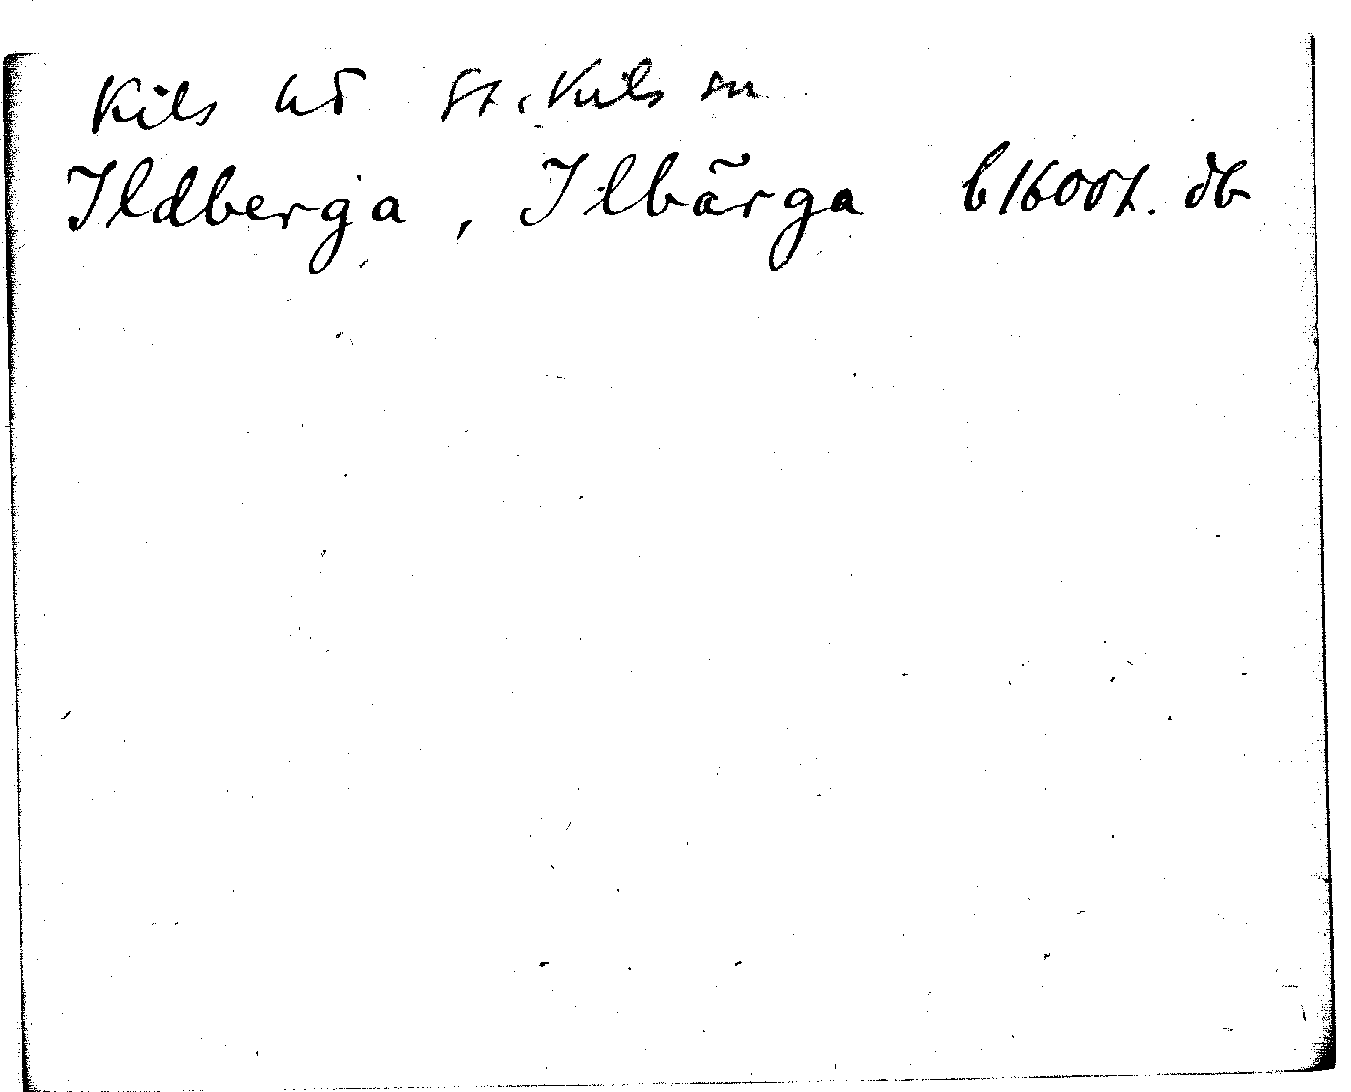 Kils hd St. Kils sn
Ildberga, Ilbärga b 1600t. db